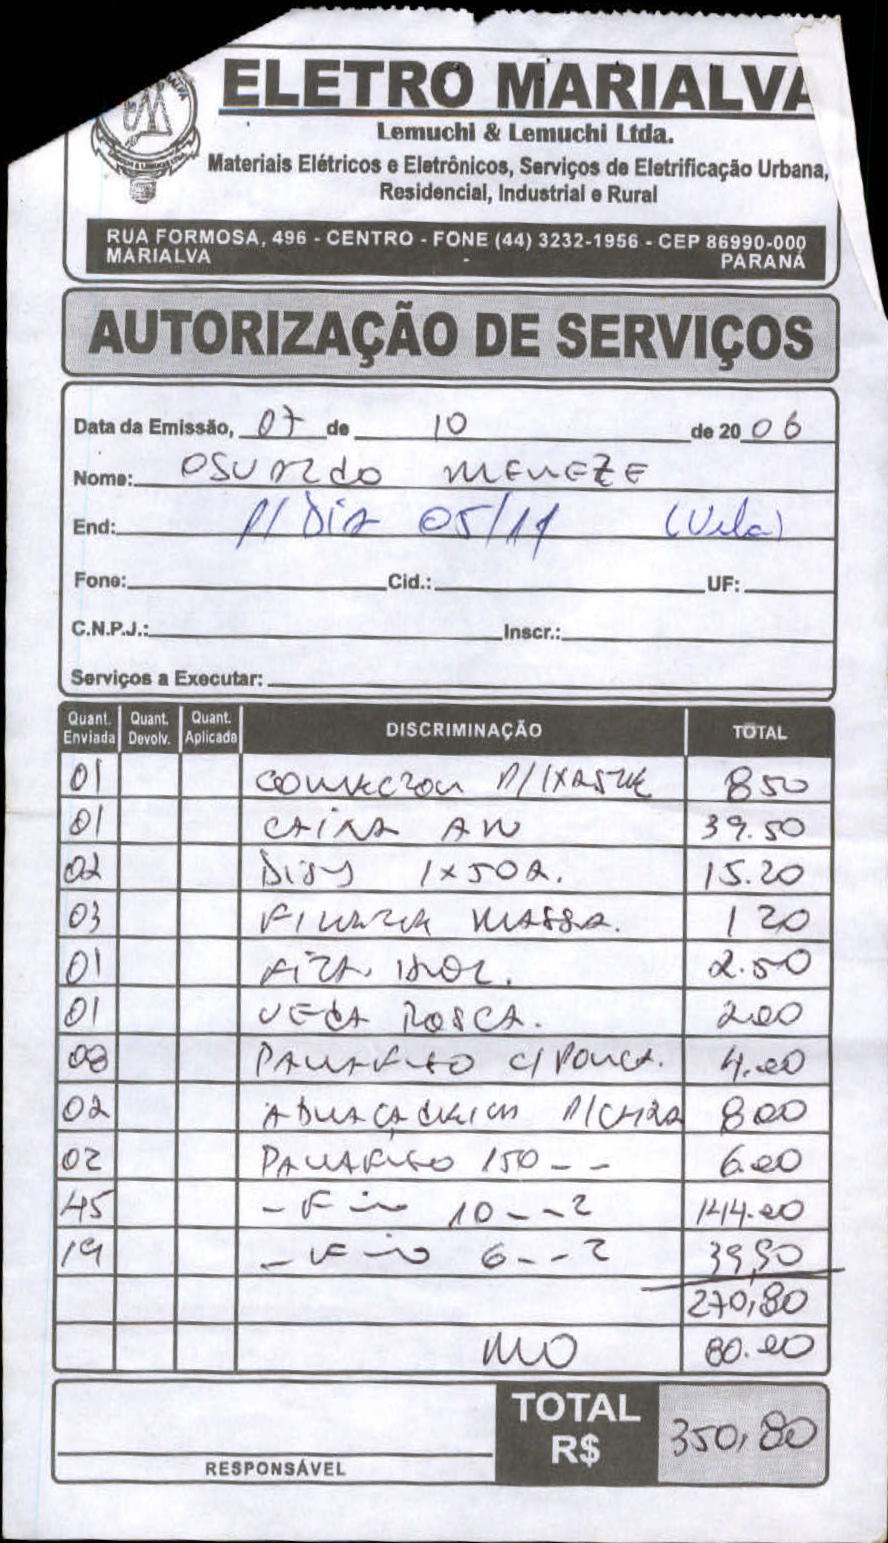 ELETRO MARIALVA
Lemuchi & Lemuchi Ltda.
Materiais Elétricos e Eletrônicos, Serviços de Eletrificação Urbana,
Residencial, Industrial e Rural
RUA FORMOSA, 496 - CENTRO - FONE (44) 3232-1956 - CEP 86990-000
MARIALVA - PARANÁ
AUTORIZAÇÃO DE SERVIÇOS
Data da Emissão, 07 de 10 de 20 06
Nome: OSVALDO MENEZE
End: P/ DIA 05/11 (Vela)
Fone: Cid.: UF:
C.N.P.J.: Inscr.:
Serviços a Executar:
Quant. Enviada Quant. Devolv. Quant. Aplicada DISCRIMINAÇÃO TOTAL
01 CONECTOR P/ 8 50
01 CAIXA AN 39.50
02 DISJ 1x50A. 15.20
03 MASSA. 1 20
01 FITA ISOL. 2.50
01 VEDA ROSCA. 2.00
08 PARAFUSO C/ PORCA. 4.00
02 ABRAÇADEIRA P/ CAIXA 8.00
02 PARAFUSO 150 -- 6.00
45 - Fio 10 -- 2 144.00
19 - Fio 6 -- 2 39,90
270,80
MO 80.00
TOTAL R$ 350,80
RESPONSÁVEL